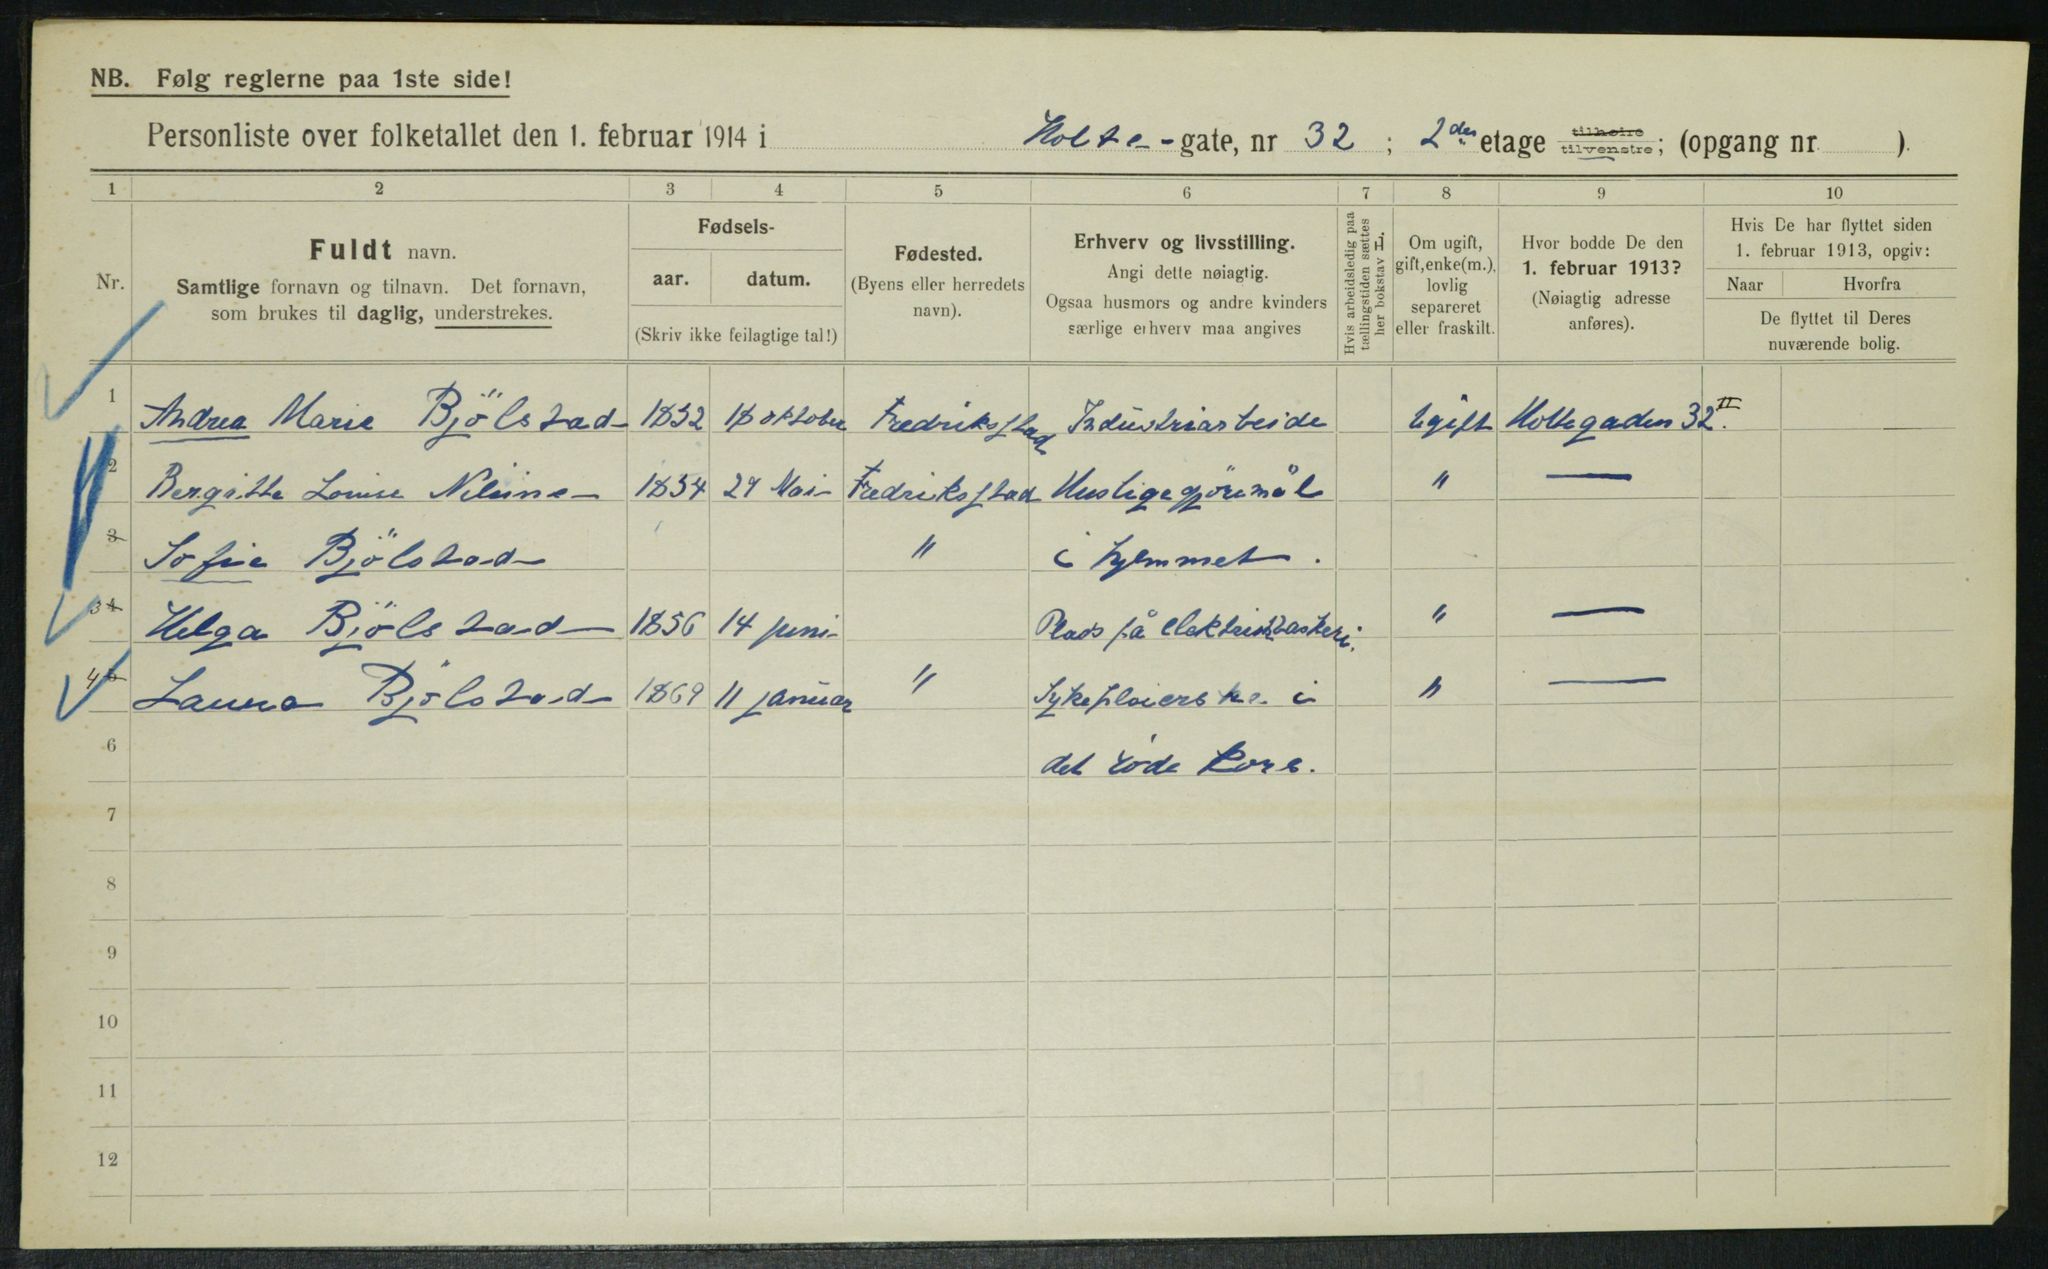 NB. Følg reglerne paa 1ste side!
Personliste over folketallet den 1. februar 1914 i Holte-gate, nr 32 ; 2den etage tilhøire tilvenstre; (opgang nr ).
1 2 3 4 5 6 7 8 9 10
Nr.
Fuldt navn.
Samtlige fornavn og tilnavn. Det fornavn,
som brukes til daglig, understrekes.
Fødsels-
aar. datum.
(Skriv ikke feilagtige tal!)
Fødested.
(Byens eller herredets
navn).
Erhverv og livsstilling.
Angi dette nøiagtig.
Ogsaa husmors og andre kvinders
særlige erhverv maa angives
Hvis arbeidsledig paa
tællingstiden sættes
her bokstav L.
Om ugift,
gift, enke(m.),
lovlig
separeret
eller fraskilt.
Hvor bodde De den
1. februar 1913?
(Nøiagtig adresse
anføres).
Hvis De har flyttet siden
1. februar 1913, opgiv:
Naar Hvorfra
De flyttet til Deres
nuværende bolig.
1 Andrea Marie Bjölstad 1852 18 oktober Fredrikstad Industriarbeide Ugift Holtegaden 32 II.
2 Bergitte Louise 1854 29 Mai Fredrikstad Huslige gjöremål " —
3 Sofie Bjölstad " i hjemmet.
3 4 Helga Bjölstad 1856 14 juni Plads på " —
4 5 Laura Bjölstad 1869 11 januar " Sykepleierske i " —
6 det röde Kors.
7
8
9
10
11
12